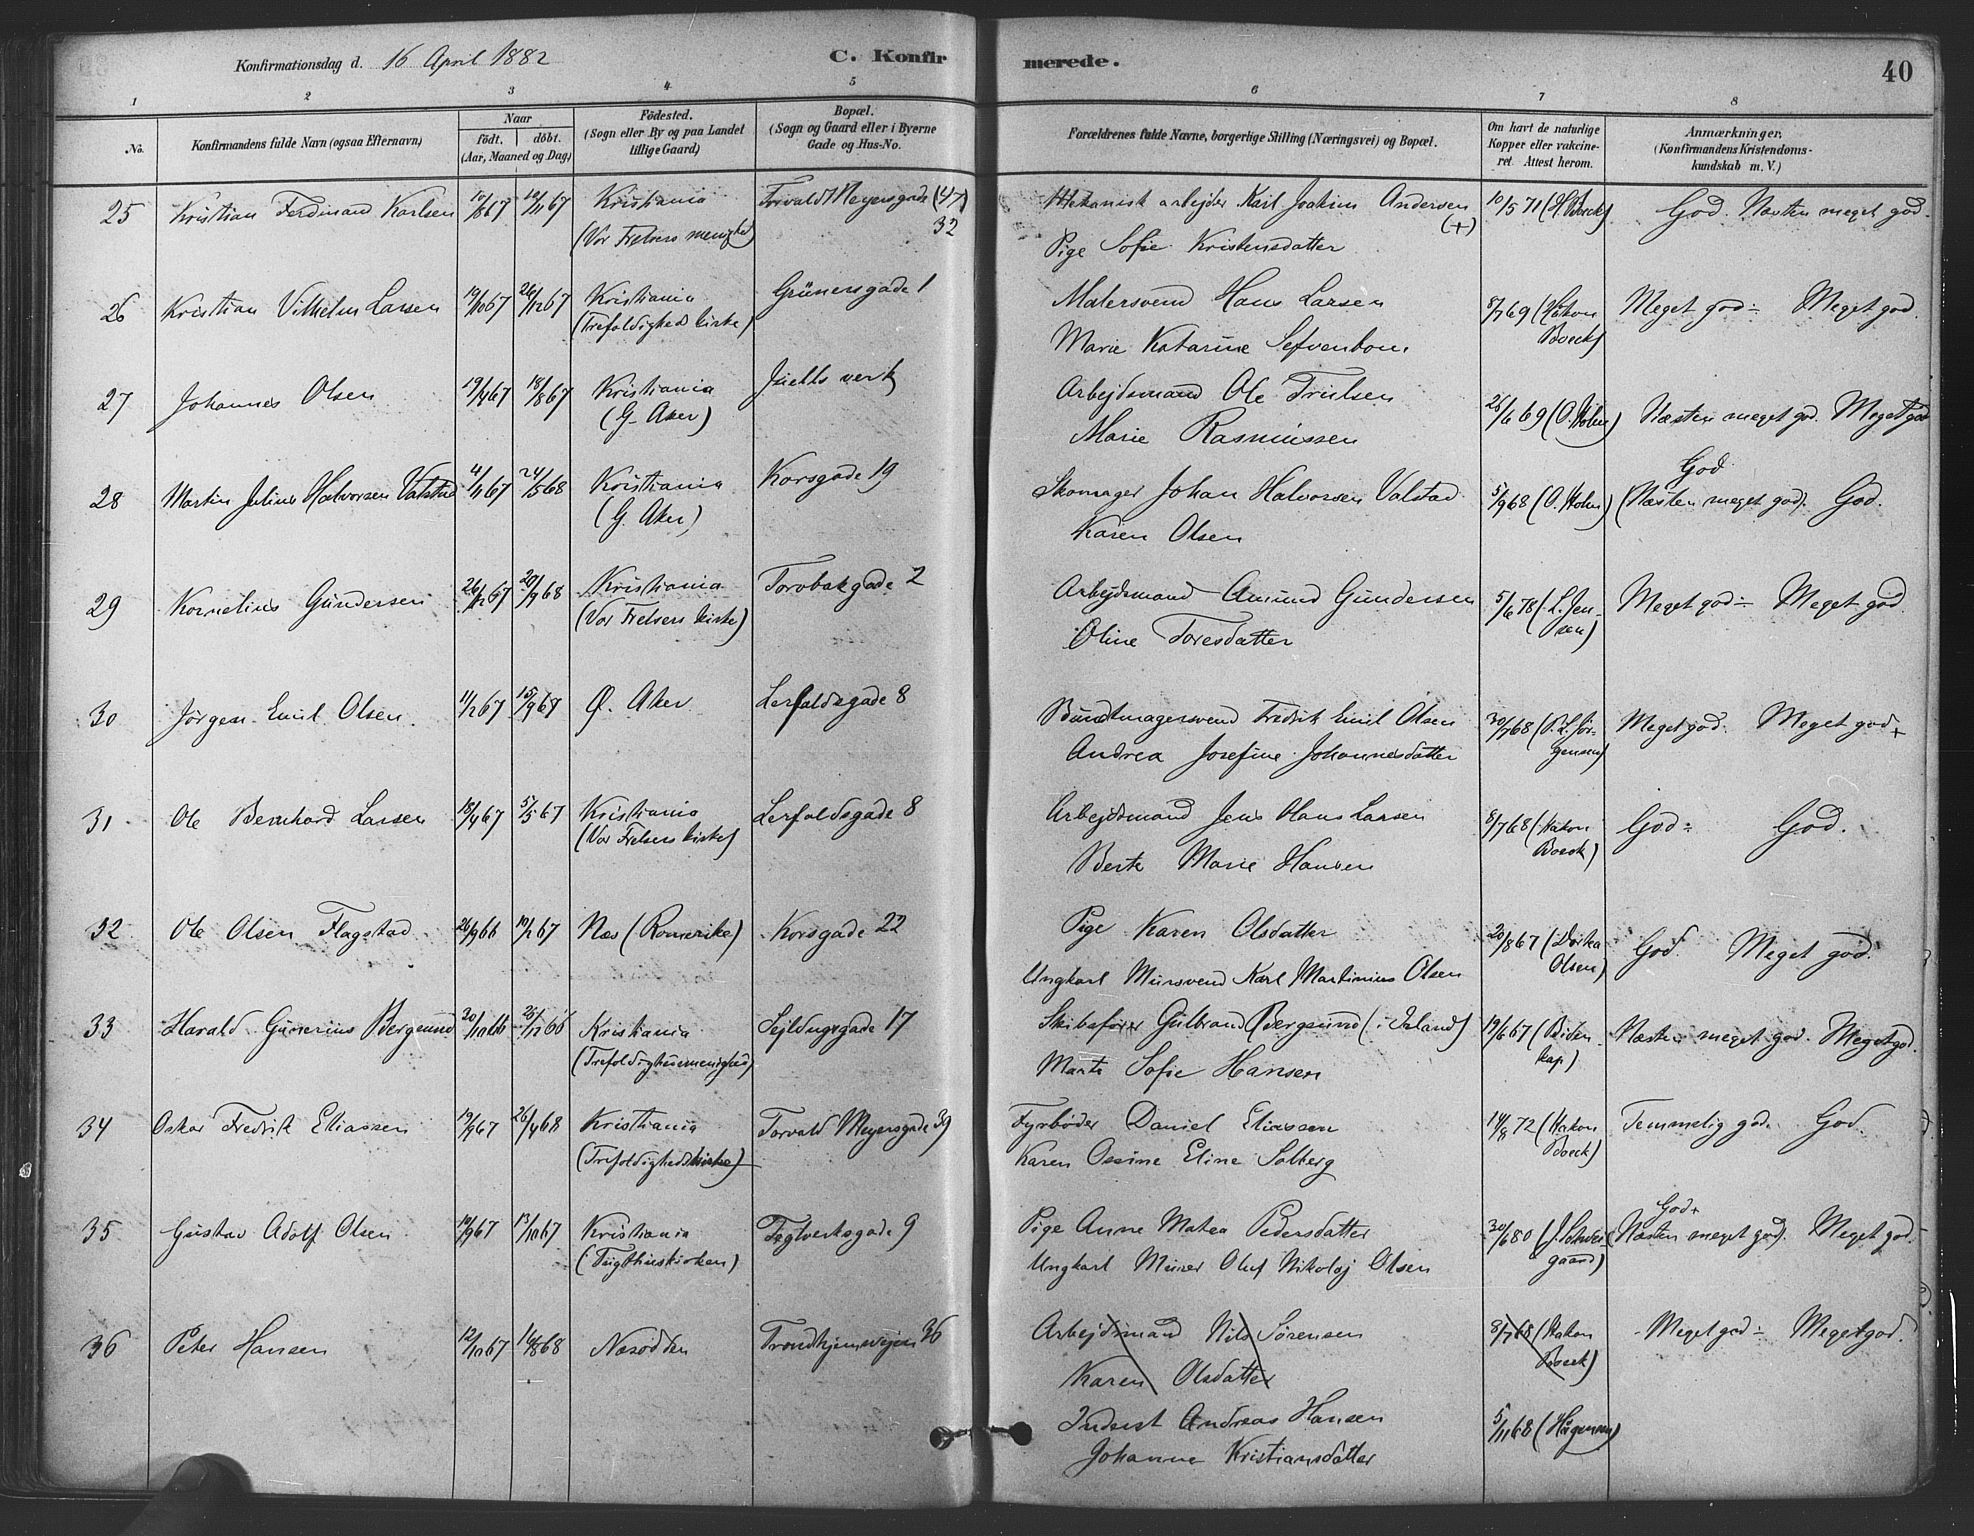 Konfirmationsdag d. 16 April 1882
C. Konfirmerede.
40
1 2 3 4 5 6 7 8
No.
Konfirmandens fulde Navn (ogsaa Efternavn)
Naar
født. døbt.
(Aar, Maaned og Dag)
Fødested.
(Sogn eller By og paa Landet tillige Gaard)
Bopæl.
(Sogn og Gaard eller i Byerne Gade og Hus-No.
Forældrenes fulde Navne, borgerlige Stilling (Næringsvei) og Bopæl.
Om havt de naturlige Kopper eller vakcineret. Attest herom.
Anmærkninger.
(Konfirmandens Kristendomskundskab m. V.)
25 Kristian Ferdinand Karlsen 10/11 67 Kristiania Torvald Meyersgade (47) Mekanisk arbejder Karl Joakim Andersen (+) 10/5 71 (H. Boeck) God. Næsten meget god.
(Vor Frelsers menighed) 32 Pige Sofie Kristensdatter
26 Kristian Vilhelm Larsen 19/10 67 26/12 67 Kristiania Grünersgade 1 Malersvend Hans Larsen 8/7 69 (Hakon Boeck) Meget god ÷ Meget god.
(Trefoldigheds kirke) Marie Katarine
27 Johannes Olsen 19/4 67 18/8 67 Kristiania verk Arbejdsmand Ole Trulsen 69 (O. Holm) Næsten meget god. Meget god
(G. Aker) Marie Rasmussen
28 Martin Julius Halvorsen Valstad 4/11 67 24/5 68 Kristiania Korsgade 19 Skomager Johan Halvorsen Valstad 5/9 68 (O. Holm) God (Næsten meget god). God.
(G. Aker) Karen Olsen
29 Kornelius Gundersen 26/12 67 20/9 68 Kristiania Torvbakgade 2 Arbejdsmand Amund Gundersen 5/6 78 (L. Jensen) Meget god ÷ Meget god.
(Vor Frelsers kirke) Oline Toresdatter
30 Jørgen Emil Olsen. 11/2 67 15/9 67 Ø. Aker Lerfaldsgade 8 Buntmagersvend Fredrik Emil Olsen 30/7 68 (P. L. Jørgensen) Meget god. Meget god +
Andrea Josefine Johannesdatter
31 Ole Bernhard Larsen 18/4 67 5/5 67 Kristiania Lerfaldsgade 8 Arbejdsmand Jens Hans Larsen 8/7 68 (Hakon Boeck) God ÷ God.
(Vor Frelsers kirke) Berte Marie Hansen
32 Ole Olsen Flagstad 26/9 66 10/2 67 Næs (Romerike) Korsgade 22 Pige Karen Olsdatter 67 (Dorthea Olsen) God. Meget god.
Ungkarl Mursvend Karl Martinius Olsen
33 Harald Gunerius Bergsund 20/10 66 26/12 66 Kristiania Sejldugsgade 17 Skibsfører Gulbrand Bergsund (i Island) 19/6 67 (Bidenkap) Næsten meget god. Meget god.
(Trefoldighedsmenighed) Marte Sofie Hansen
34 Oskar Fredrik Eliassen 19/9 67 26/4 68 Kristiania Torvald Meyersgade 39 Fyrbøder Daniel Eliassen 14/8 72 (Hakon Boeck) Temmelig god. God.
(Trefoldighedskirke) Karen Eline Solberg
35 Gustav Adolf Olsen 19/9 67 13/10 67 Kristiania Teglverksgade 9 Pige Anne Matea Pedersdatter 30/6 80 (J. Schweigaard) God + (Næsten meget god). Meget god.
(Tugthuskirken) Ungkarl Murer Oluf Nikolaj Olsen
36 Peter Hansen 12/10 67 16/8 68 Næsodden Trondhjemsvejen 36 Arbejdsmand Nils Sørensen 8/7 68 (Hakon Boeck) Meget god ÷ Meget god.
Karen Olsdatter
Inderst Andreas Hansen 5/11 68 (Hagemann)
Johanne Kristiansdatter